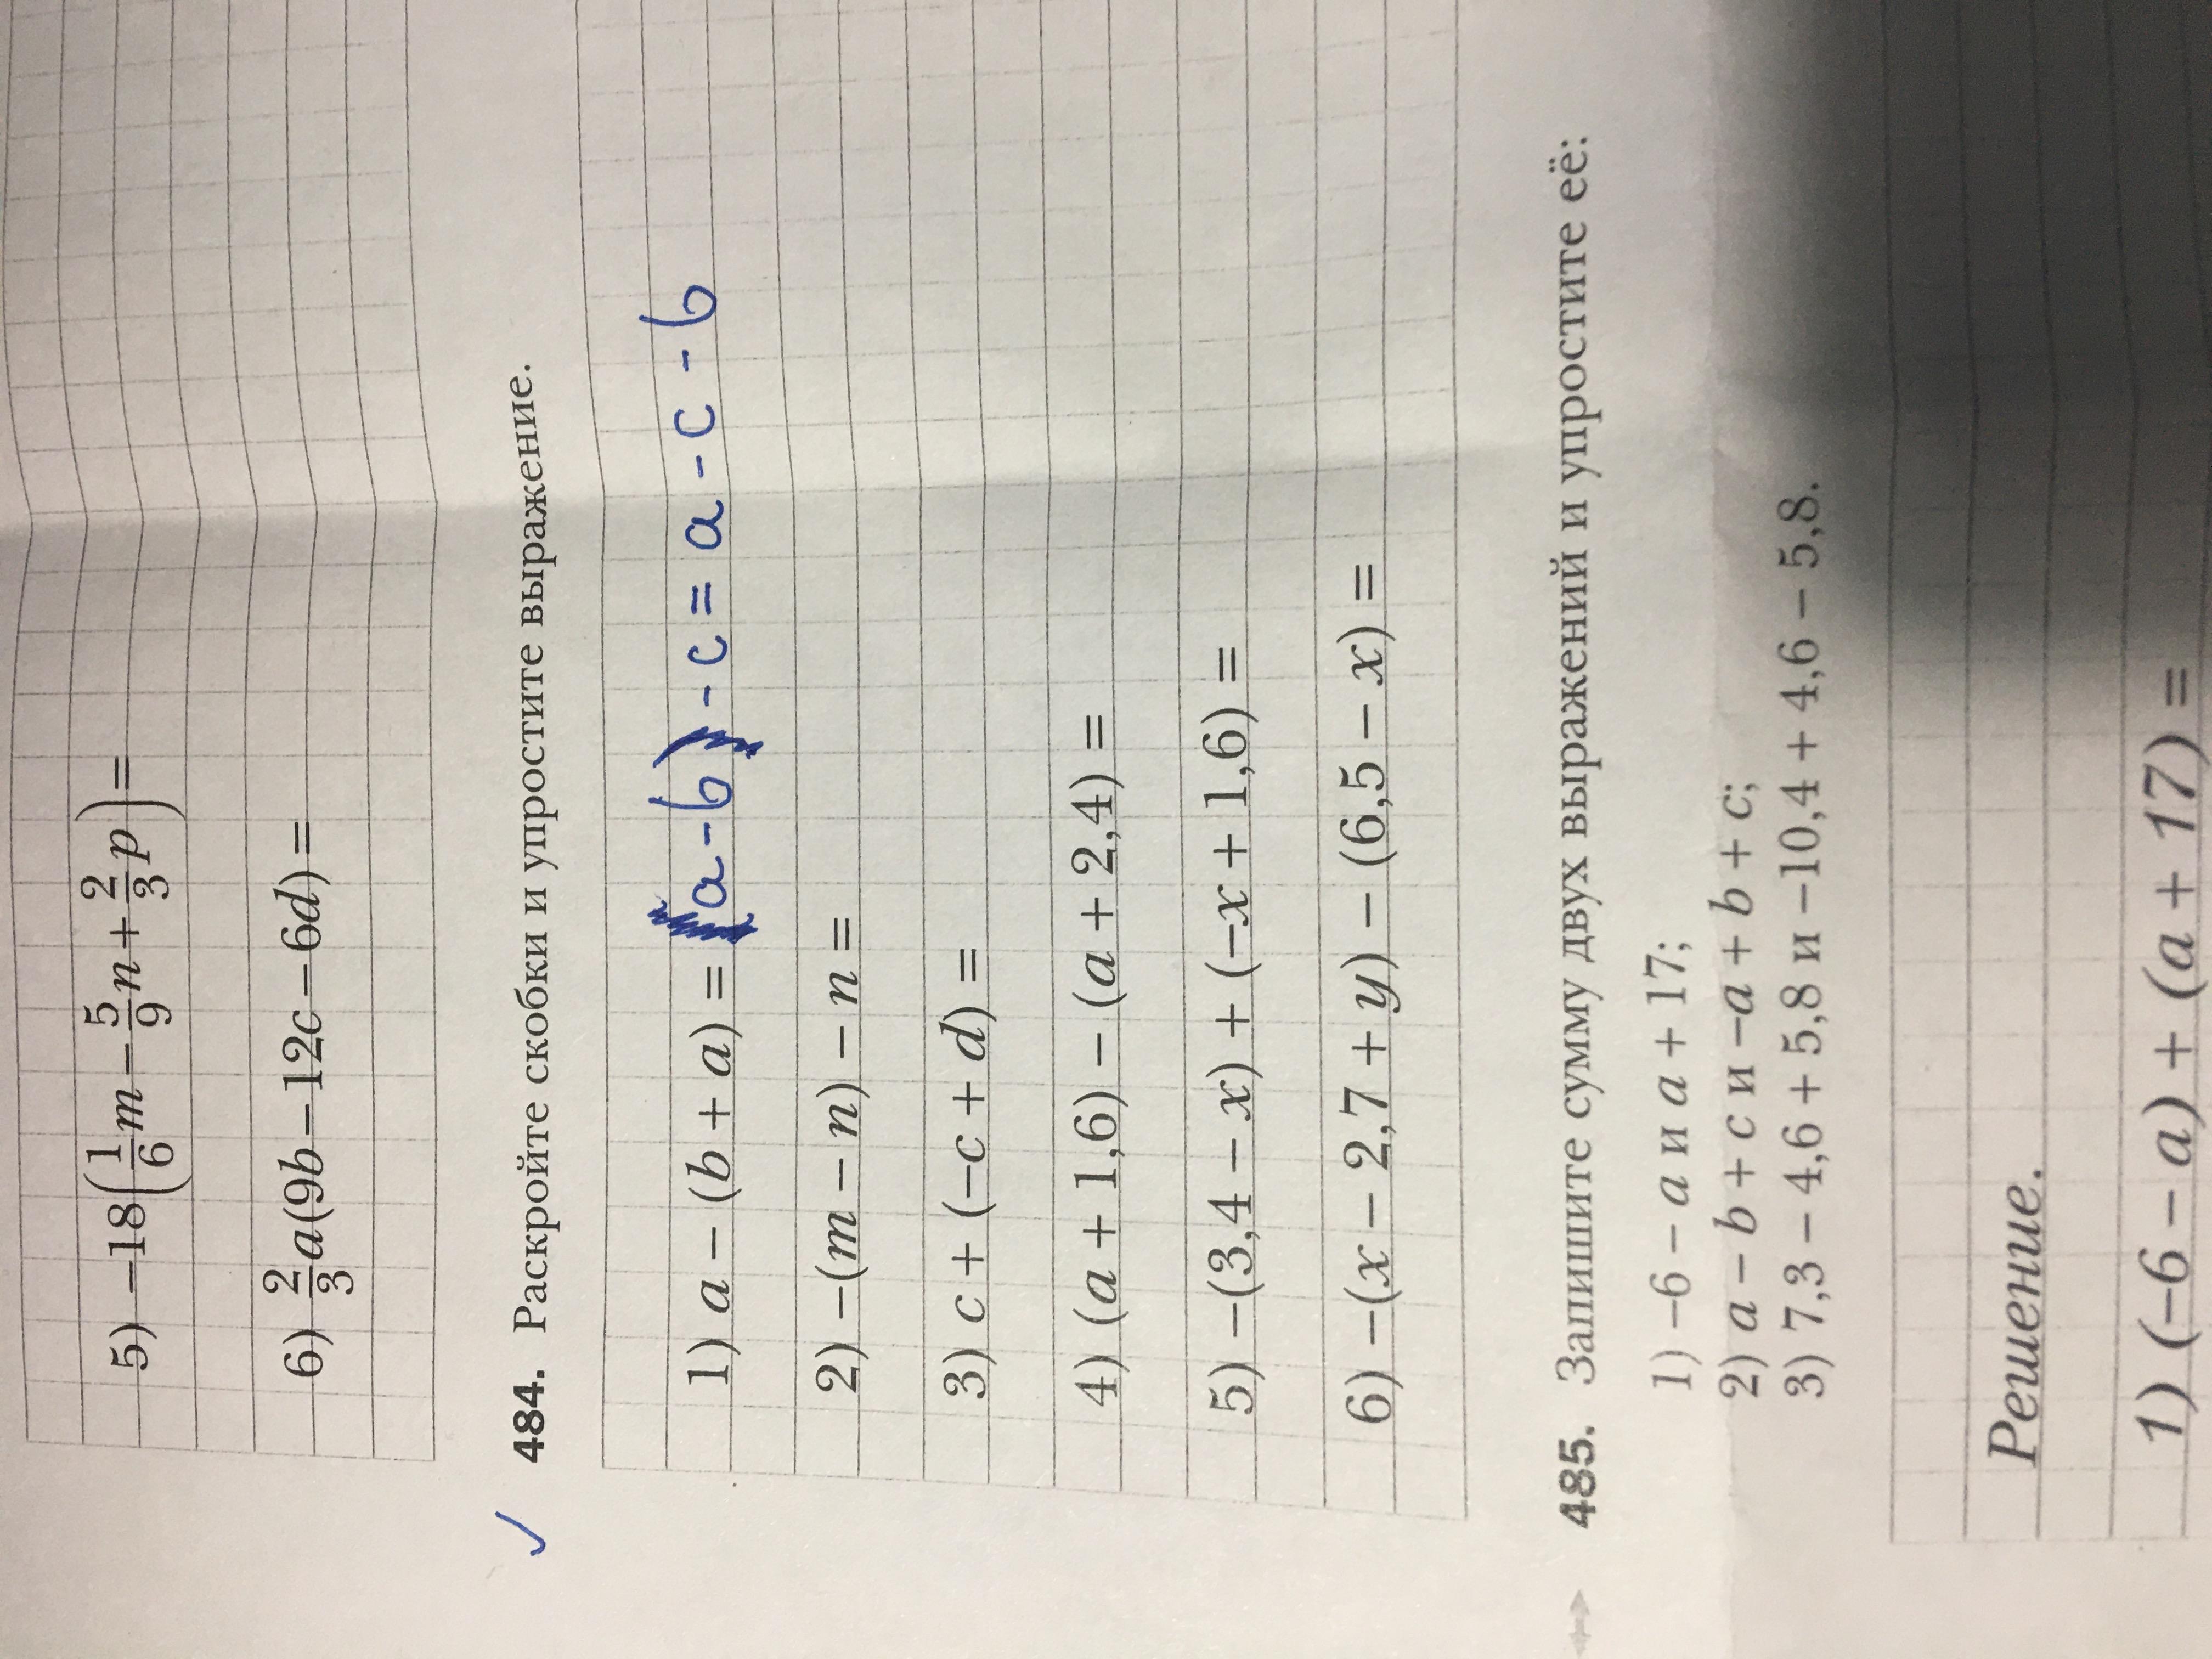 5) −18(1/6 m − 5/9 n + 2/3 p) =
6) 2/3 a(9b − 12c − 6d) =
✓ 484. Раскройте скобки и упростите выражение.
1) a − (b + a) = (a - b) - c = a - c - b
2) −(m − n) − n =
3) c + (−c + d) =
4) (a + 1,6) − (a + 2,4) =
5) −(3,4 − x) + (−x + 1,6) =
6) −(x − 2,7 + y) − (6,5 − x) =
485. Запишите сумму двух выражений и упростите её:
1) −6 − a и a + 17;
2) a − b + c и −a + b + c;
3) 7,3 − 4,6 + 5,8 и −10,4 + 4,6 − 5,8.
Решение.
1) (−6 − a) + (a + 17) =